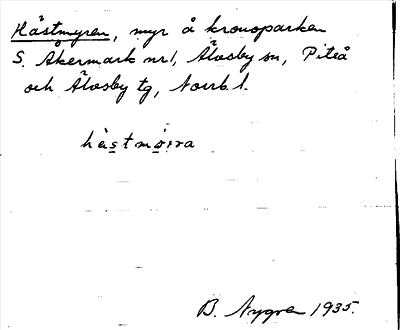 Hästmyren, myr å kronoparken
S. Åkermark nr 1, Älvsby sn, Piteå
och Älvsby tg, Norrb. l.
hàstmø̀ɪra
B. Nygren 1935.